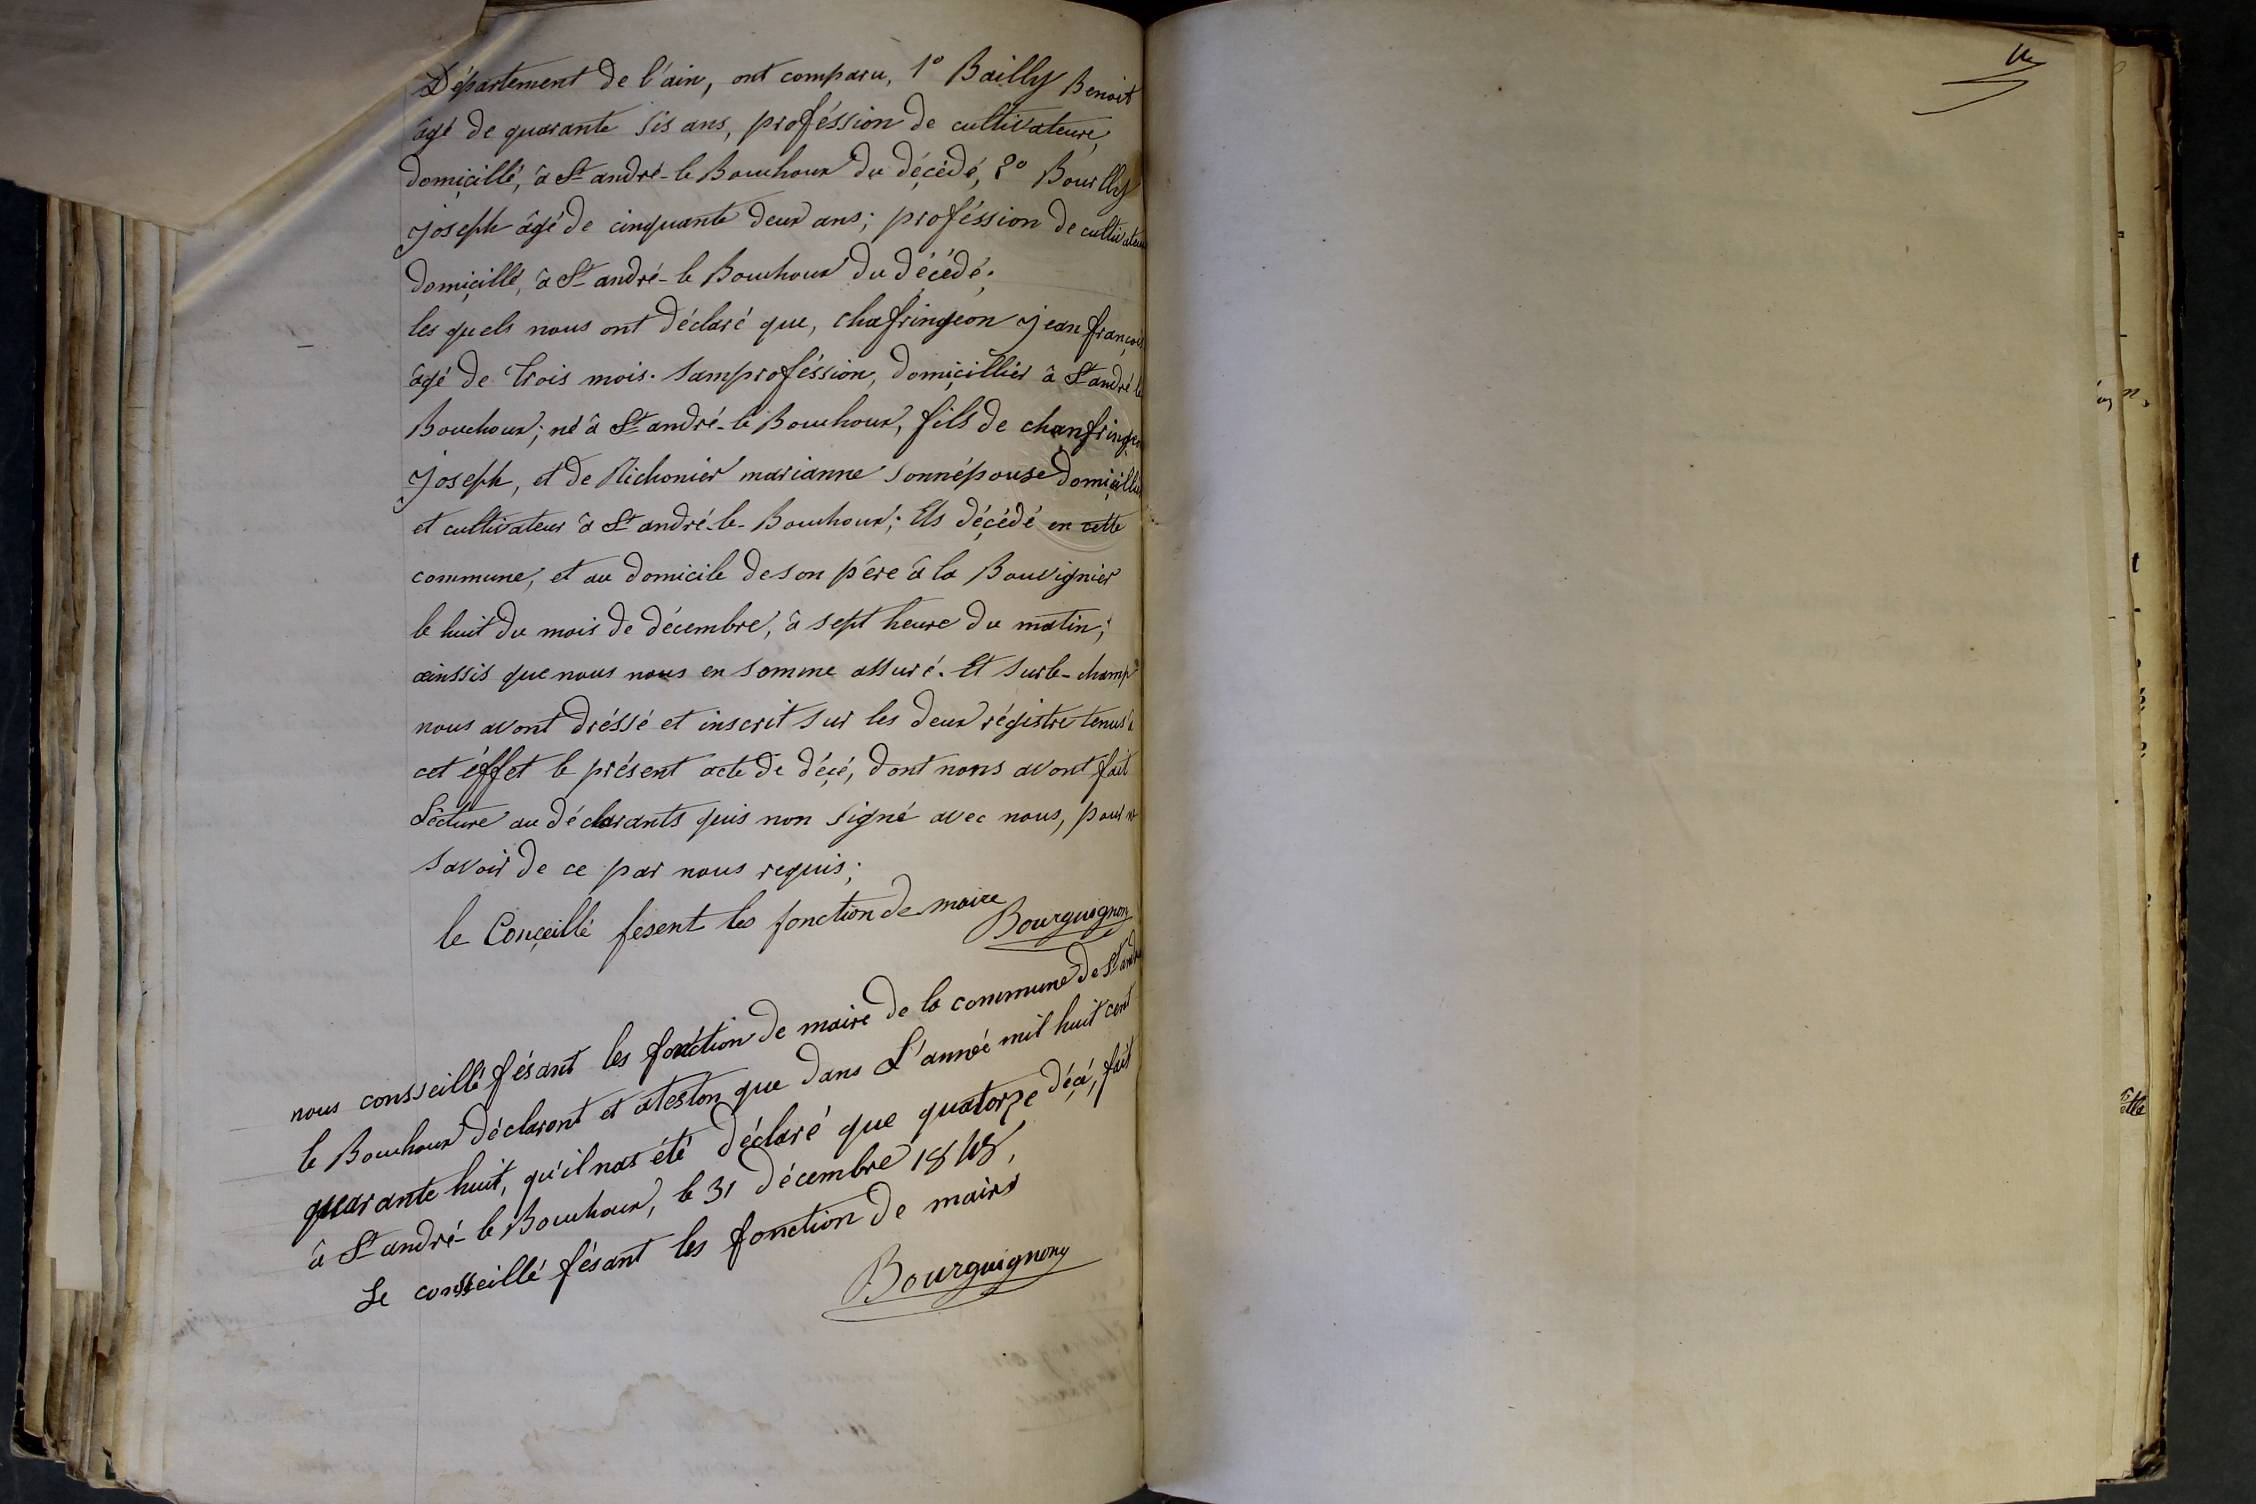 Département de l'ain, ont comparu, 1º Bailly Benoit
âgé de quarante sis ans, proféssion de cultivateure,
domicillé, â St andré-le Bouchoux du décédé, 2º Bourlly
joseph âgé de cinquante deux ans; proféssion de cultivateur
domicillé, â St andré-le Bouchoux du décédé;
les quels nous ont déclaré que, chafringeon jean françois
âgé de trois mois. samproféssion, domicillier â St andré le
Bouchoux; né â St andré-le Bouchoux, fils de chanfringeon
joseph, et de Richonier marianne sonnépouse domicillier
et cultivateur â St andré-le-Bouchoux; Ets décédé en cette
commune, et au domicile de son père â la Bouvignier
le huit du mois de décembre, â sept heure du matin;
ainssis que nous nous en somme assuré. Et surle-champ
nous avont dréssé et inscrit sur les deux régistre tenus à
cet éffet le présent acte de décé, dont nous avont fait
Lécture au déclarants quis non signé avec nous, pour ne
savoir de ce par nous requis;
le Conçeillé fesent les fonction de maire
Bourguignon
nous consseillé fésant les fonction de maire de la commune de St andré
le Bouchoux déclaront et ateston que dans L'année mil huit cent
quarante huit, qu'il nas été déclaré que quatorze décé, fait
â St andré-le Bouchoux, le 31 décembre 1848,
Le consseillé fésant les fonction de maire
Bourguignon